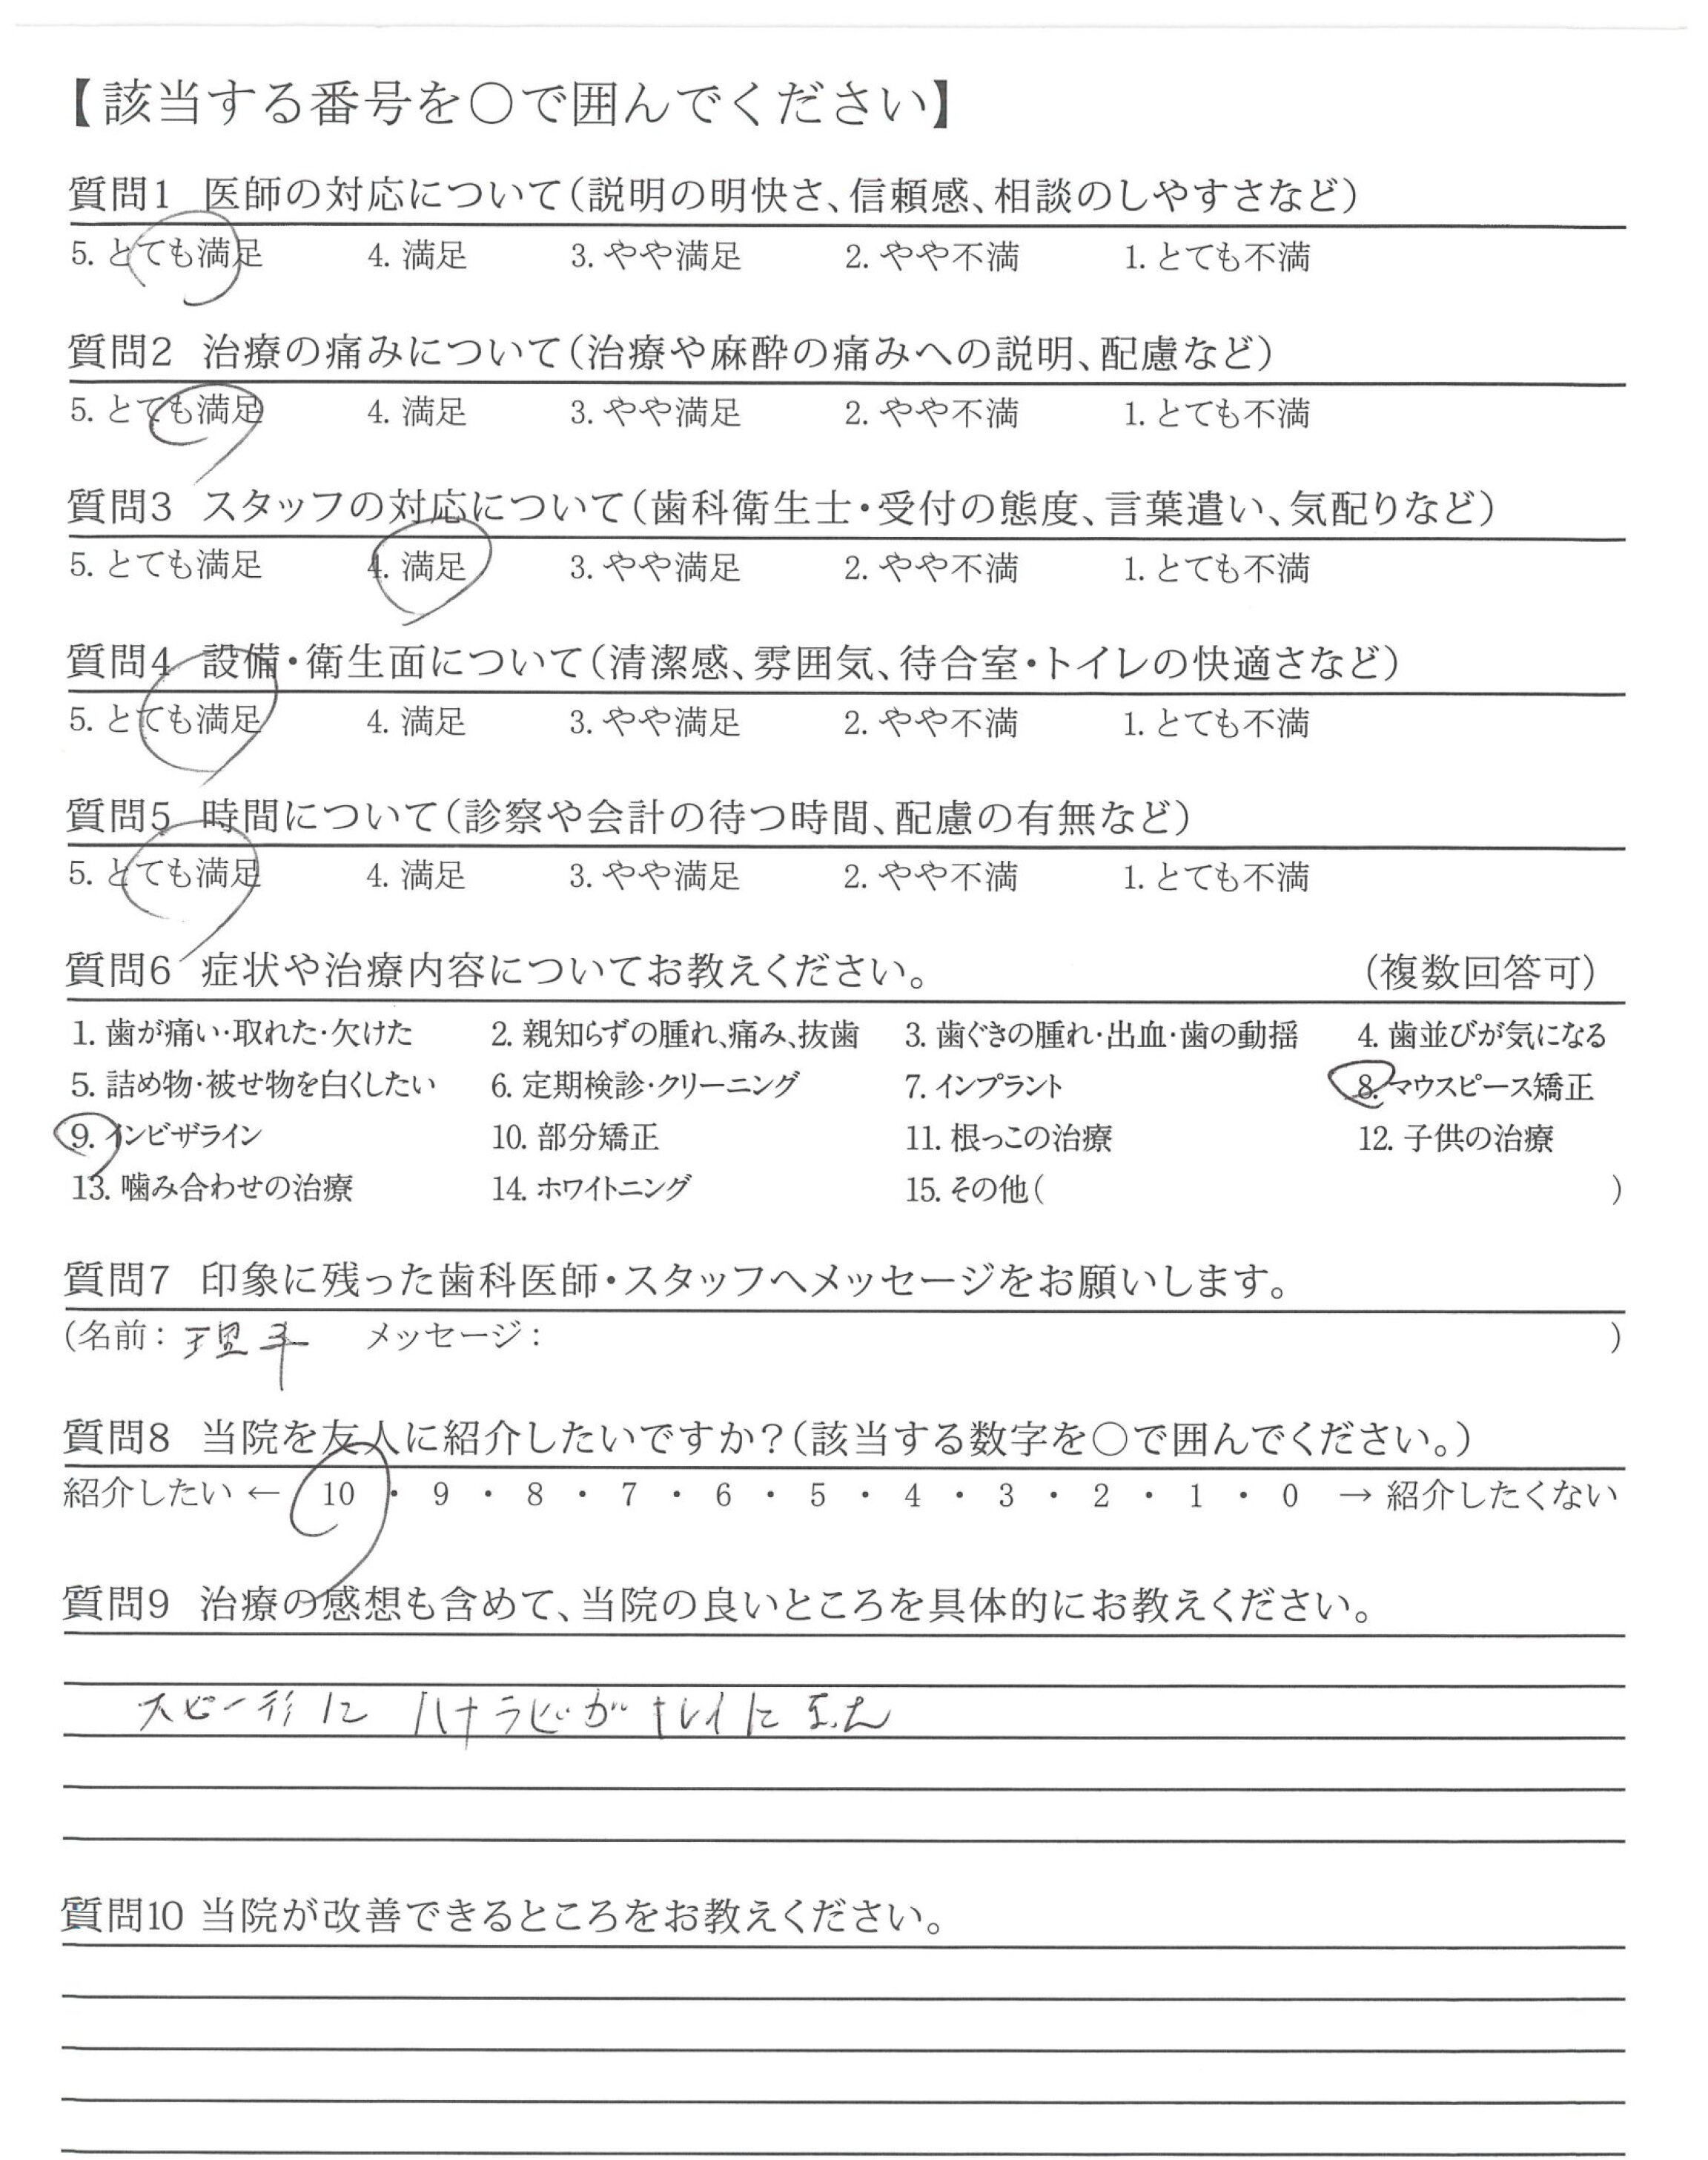 【該当する番号を○で囲んでください】
質問1 医師の対応について(説明の明快さ、信頼感、相談のしやすさなど)
5. とても満足 4. 満足 3. やや満足 2. やや不満 1. とても不満
質問2 治療の痛みについて(治療や麻酔の痛みへの説明、配慮など)
5. とても満足 4. 満足 3. やや満足 2. やや不満 1. とても不満
質問3 スタッフの対応について(歯科衛生士・受付の態度、言葉遣い、気配りなど)
5. とても満足 4. 満足 3. やや満足 2. やや不満 1. とても不満
質問4 設備・衛生面について(清潔感、雰囲気、待合室・トイレの快適さなど)
5. とても満足 4. 満足 3. やや満足 2. やや不満 1. とても不満
質問5 時間について(診察や会計の待つ時間、配慮の有無など)
5. とても満足 4. 満足 3. やや満足 2. やや不満 1. とても不満
質問6 症状や治療内容についてお教えください。 (複数回答可)
1. 歯が痛い・取れた・欠けた 2. 親知らずの腫れ、痛み、抜歯 3. 歯ぐきの腫れ・出血・歯の動揺 4. 歯並びが気になる
5. 詰め物・被せ物を白くしたい 6. 定期検診・クリーニング 7. インプラント 8. マウスピース矯正
9. インビザライン 10. 部分矯正 11. 根っこの治療 12. 子供の治療
13. 噛み合わせの治療 14. ホワイトニング 15. その他( )
質問7 印象に残った歯科医師・スタッフへメッセージをお願いします。
(名前: メッセージ: )
質問8 当院を友人に紹介したいですか?(該当する数字を○で囲んでください。)
紹介したい ← 10 ・ 9 ・ 8 ・ 7 ・ 6 ・ 5 ・ 4 ・ 3 ・ 2 ・ 1 ・ 0 → 紹介したくない
質問9 治療の感想も含めて、当院の良いところを具体的にお教えください。
に ハナラビが キレイに
質問10 当院が改善できるところをお教えください。